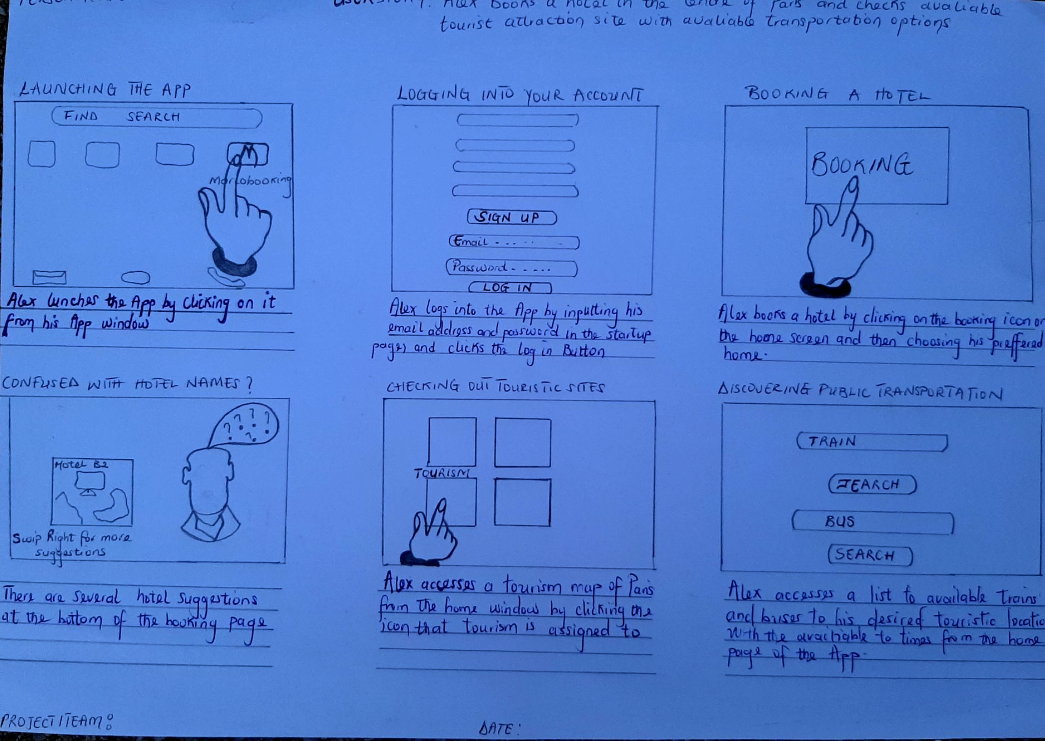 Alex books a hotel in the centre of Paris and checks avaliable
tourist attraction site with avaliable transportation options
LAUNCHING THE APP
FIND SEARCH
M
Marlobooking
Alex lunches the App by clicking on it
from his App window
LOGGING INTO YOUR ACCOUNT
SIGN UP
Email - - - - -
Password - - - - -
LOG IN
Alex logs into the App by inputting his
email address and password in the startup
page, and clicks the log in Button
BOOKING A HOTEL
BOOKING
Alex books a hotel by clicking on the booking icon on
the home screen and then choosing his preffered
home.
CONFUSED WITH HOTEL NAMES?
? ? ? ? ? ?
Hotel B2
Swip Right for more
suggestions
There are several hotel suggestions
at the bottom of the booking page
CHECKING OUT TOURISTIC SITES
TOURISM
Alex accesses a tourism map of Paris
from the home window by cliking the
icon that tourism is assigned to
DISCOVERING PUBLIC TRANSPORTATION
TRAIN
SEARCH
BUS
SEARCH
Alex accesses a list to available trains
and buses to his desired touristic locatio
with the available to times from the home
page of the App.
PROJECT/TEAM:
DATE: